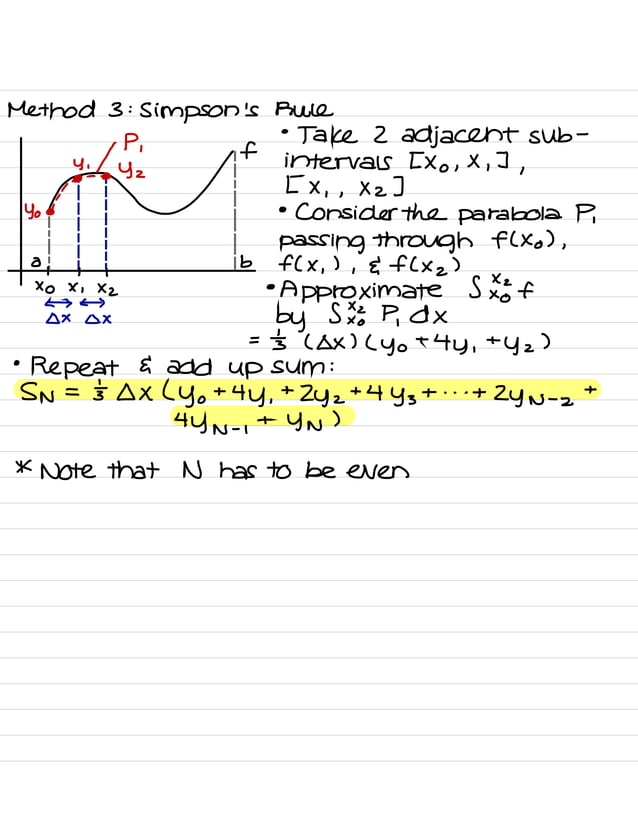 Method 3: Simpson's Rule
• Take 2 adjacent sub-
intervals [x₀, x₁],
[x₁, x₂]
• Consider the parabola P₁
passing through f(x₀),
f(x₁), & f(x₂)
• Approximate ∫ₓ₀ˣ² f
by ∫ₓ₀ˣ² P₁ dx
= ⅓ (Δx)(y₀ + 4y₁ + y₂)
P₁
f
y₁
y₂
y₀
a
b
x₀ x₁ x₂
Δx Δx
• Repeat & add up sum:
S_N = ⅓ Δx (y₀ + 4y₁ + 2y₂ + 4y₃ + ··· + 2y_{N-2} +
4y_{N-1} + y_N)
* Note that N has to be even